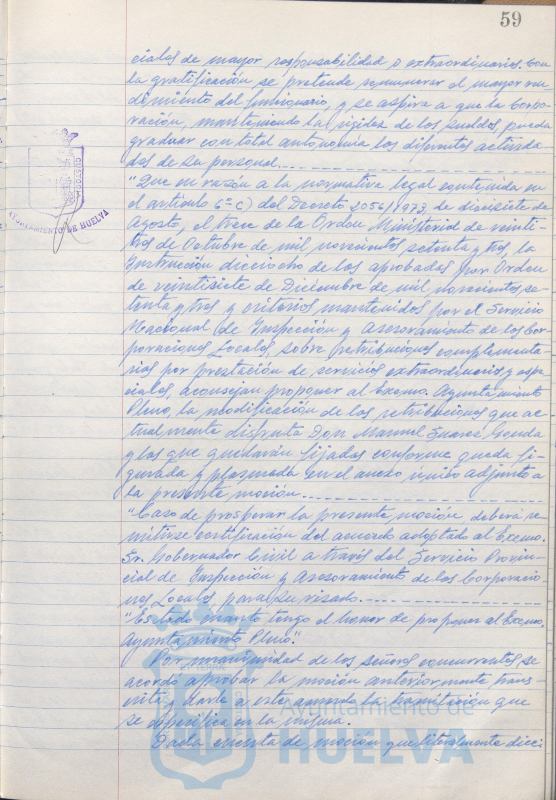 59
ciales de mayor responsabilidad o extraordinarios. Con
la gratificación se pretende remunerar el mayor ren-
dimiento del funcionario, y se aspira a que la Corpo-
ración, manteniendo la rigidez de los sueldos, pueda
graduar con total autonomía las diferentes activida
des de su personal.
"Que en razón a la normativa legal contenida en
el artículo 6º C) del Decreto 2056/1973, de diecisiete de
Agosto, el trece de la Orden Ministerial de veinti-
trés de Octubre de mil novecientos setenta y tres, la
Instrucción dieciocho de las aprobadas por Orden
de veintisiete de Diciembre de mil novecientos se-
tenta y tres y criterios mantenidos por el Servicio
Nacional de Inspección y Asesoramiento de las Cor
poraciones Locales, sobre retribuciones complementa
rias por prestación de servicios extraordinarios y espe
ciales, aconsejan proponer al Excmo. Ayuntamiento
Pleno, la modificación de las retribuciones que ac-
tualmente disfruta Don Manuel Suarez
y las que quedarán fijadas conforme queda fi-
gurada y plasmada en el anexo único adjunto a
la presente moción.
"Caso de prosperar la presente moción deberá re
mitirse certificación del acuerdo adoptado al Excmo.
Sr. Gobernador Civil a través del Servicio Provin-
cial de Inspección y Asesoramiento de las Corporacio
nes Locales para su visado.
"Es todo cuanto tengo el honor de proponer al Excmo.
Ayuntamiento Pleno."
Por unanimidad de los señores concurrentes, se
acordó aprobar la moción anteriormente trans-
crita y darle a este acuerdo la tramitación que
se especifica en la misma.
Dada cuenta de moción que literalmente dice:
AYUNTAMIENTO DE HUELVA
Ayuntamiento de
HUELVA